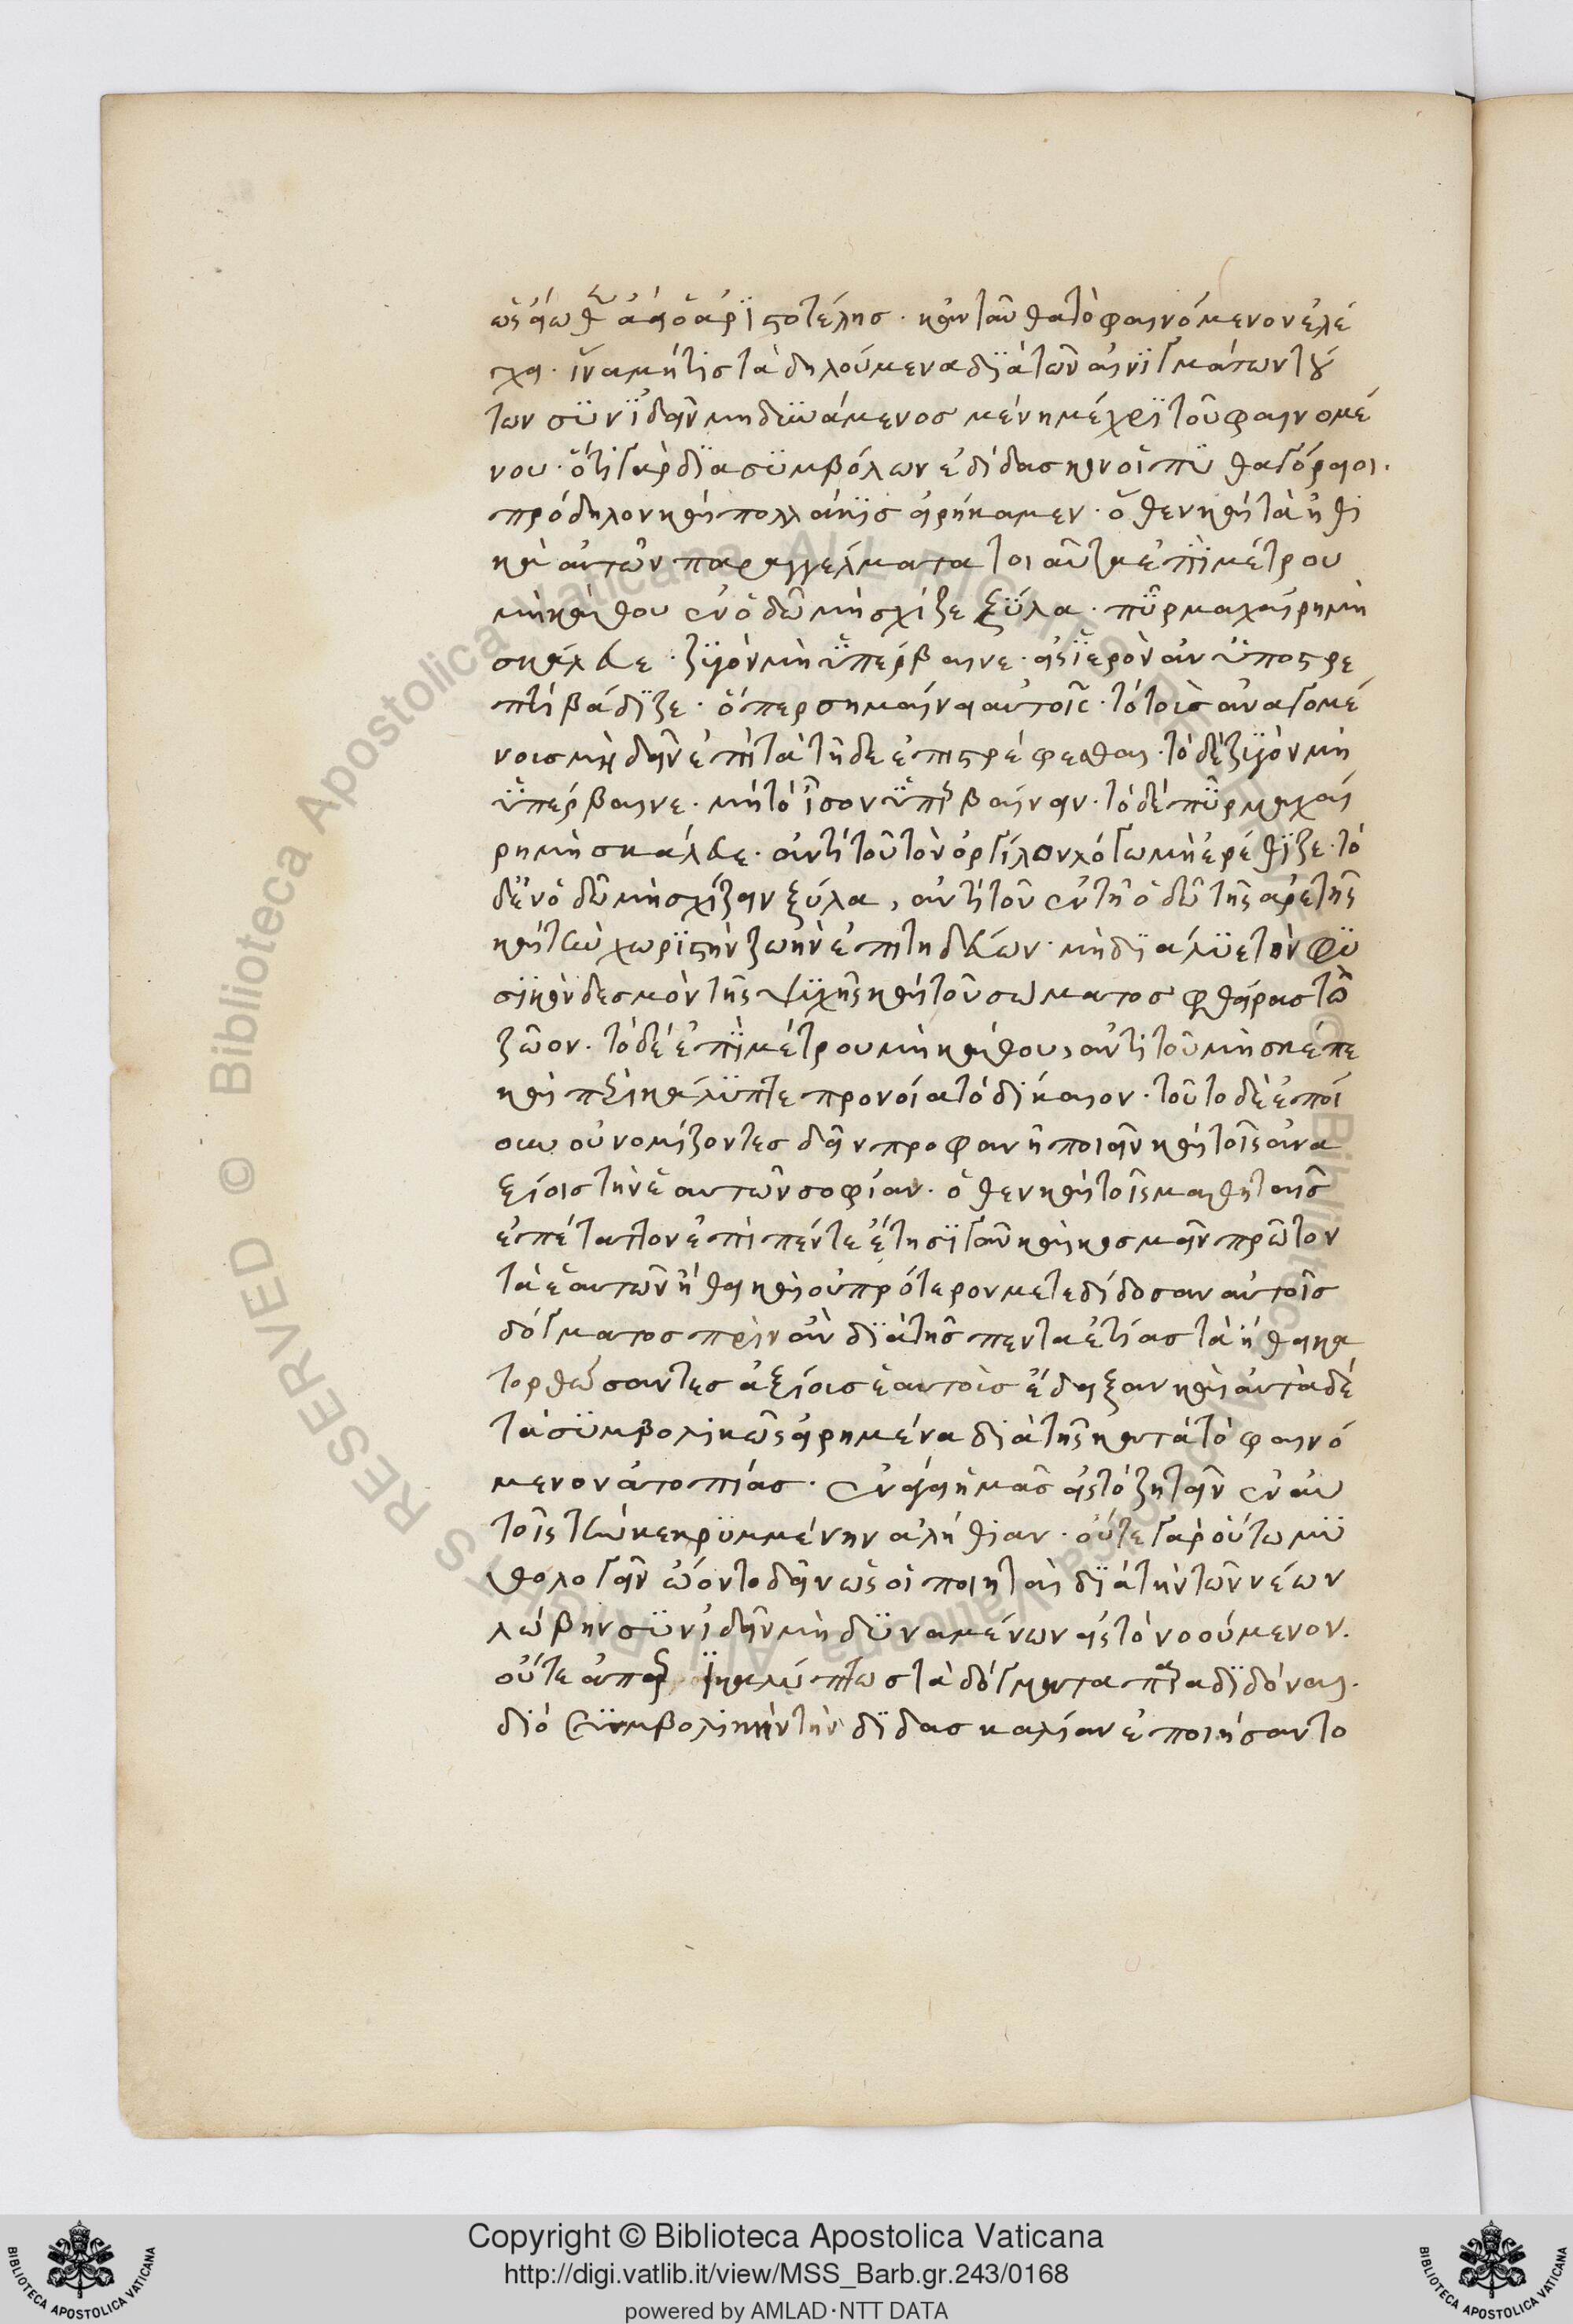 ὡς εἴωθεν ἀεὶ ὁ ἀριστοτέλης · κἀνταῦθα τὸ φαινόμενον ἐλέγ
χει · ἵνα μήτις τὰ δηλούμενα διὰ τῶν αἰνιγμάτων τού
των συνιδεῖν μη δυνάμενος μένη μέχρι τοῦ φαινομέ
νου · ὅτι γὰρ δια συμβόλων ἐδίδασκον οἱ πυθαγόρειοι ·
πρόδηλον καὶ πολλάκις εἰρήκαμεν · ὅθεν καὶ τὰ ἠθι
κὰ αὐτῶν παραγγέλματα τοιαῦτα ἐπὶ μέτρου
μὴ κάθου ἐν ὁδῶ μὴ σχίζε ξύλα · πῦρ μαχαίρη μὴ
σκάλευε · ζυγὸν μὴ ὑπέρβαινε · εἰς ἱερὸν ἀνυποστρε
πτὶ βάδιζε · ὅπερ σημαίνει αὐτοῖς · τὸ τοῖς ἀναγομέ
νοις μὴ δεῖν ἐπὶ τὰ τῆδε ἐπιστρέφεσθαι · τὸ δὲ ζυγὸν μὴ
ὑπέρβαινε · μὴ τὸ ἴσον ὑπερβαίνειν · τὸ δὲ πῦρ μαχαί
ρη μὴ σκάλευε · ἀντὶ τοῦ τὸν ὀργίλον λόγω μὴ ἐρέθιζε · τὸ
δ' ἐν ὁδῶ μὴ σχίζειν ξύλα, ἀντὶ τοῦ ἐν τῆ ὁδῶ τῆς ἀρετῆς
καὶ τὴν χωριστὴν ζωὴν ἐπιτηδεύων · μὴ διαλύε τὸν φυ
σικὸν δεσμὸν τῆς ψυχῆς καὶ τοῦ σώματος φθείρας τὸ
ζῶον · τὸ δὲ ἐπὶ μέτρου μὴ κάθου, ἀντὶ τοῦ μὴ σκέπε
καὶ περικάλυπτε προνοία τὸ δίκαιον · τοῦτο δὲ ἐποί
ουν οὐ νομίζοντες δεῖν προφανῆ ποιεῖν καὶ τοῖς ἀνα
ξίοις τὴν ἑαυτῶν σοφίαν · ὅθεν καὶ τοῖς μαθηταῖς
ἐπέταττον ἐπὶ πέντε ἔτη σιγᾶν καὶ κοσμεῖν πρῶτον
τὰ ἑαυτῶν ἤθη καὶ οὐ πρότερον μετεδίδοσαν αὐτοῖς
δόγματος πρὶν ἂν διὰ τῆς πενταετίας τὰ ἤθη κα
τορθώσαντες ἀξίοις ἑαυτοῖς ἔδειξαν καὶ αὐτὰ δὲ
τὰ συμβολικῶς εἰρημένα διὰ τῆς κατὰ τὸ φαινό
μενον ἀτοπίας · ἐνάγει ἡμᾶς εἰς τὸ ζητεῖν ἐν αὐ
τοῖς τὴν κεκρυμμένην ἀλήθιαν · οὔτε γὰρ οὕτω μυ
θολογεῖν ὤοντο δεῖν ὡς οἱ ποιηταὶ διὰ τὴν τῶν νέων
λώβην συνιδεῖν μὴ δυναμένων εἰς τὸ νοούμενον ·
τὰ δόγματα παραδιδόναι ·
διὸ συμβολικὴν τὴν διδασκαλίαν ἐποιήσαντο
Copyright © Biblioteca Apostolica Vaticana
http://digi.vatlib.it/view/MSS_Barb.gr.243/0168
powered by AMLAD·NTT DATA